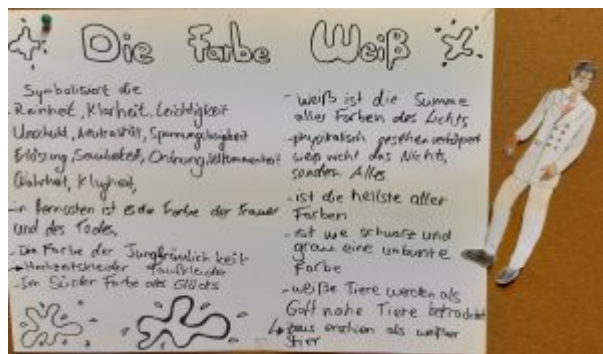 Die Farbe Weiß
Symbolisiert die
- Reinheit, Klarheit, Leichtigkeit
Unschuld, Neutralität,
Erlösung, Sauberkeit, Ordnung, Vollkommenheit
Wahrheit, Klugheit,
- in Fernosten ist es die Farbe der Trauer
und des Todes,
- Die Farbe der Jungfräulichkeit
→ Hochzeitskleider Taufkleider
- Im Süden Farbe des Glücks
- weiß ist die Summe
aller Farben des Lichts
- physikalisch gesehen verkörpert
weiß nicht das Nichts,
sondern Alles
- ist die hellste aller
Farben
- ist wie schwarz und
grau eine unbunte
Farbe
- weiße Tiere werden als
Gott nahe Tiere betrachtet
↳ Zeus erschien als weißer
Stier